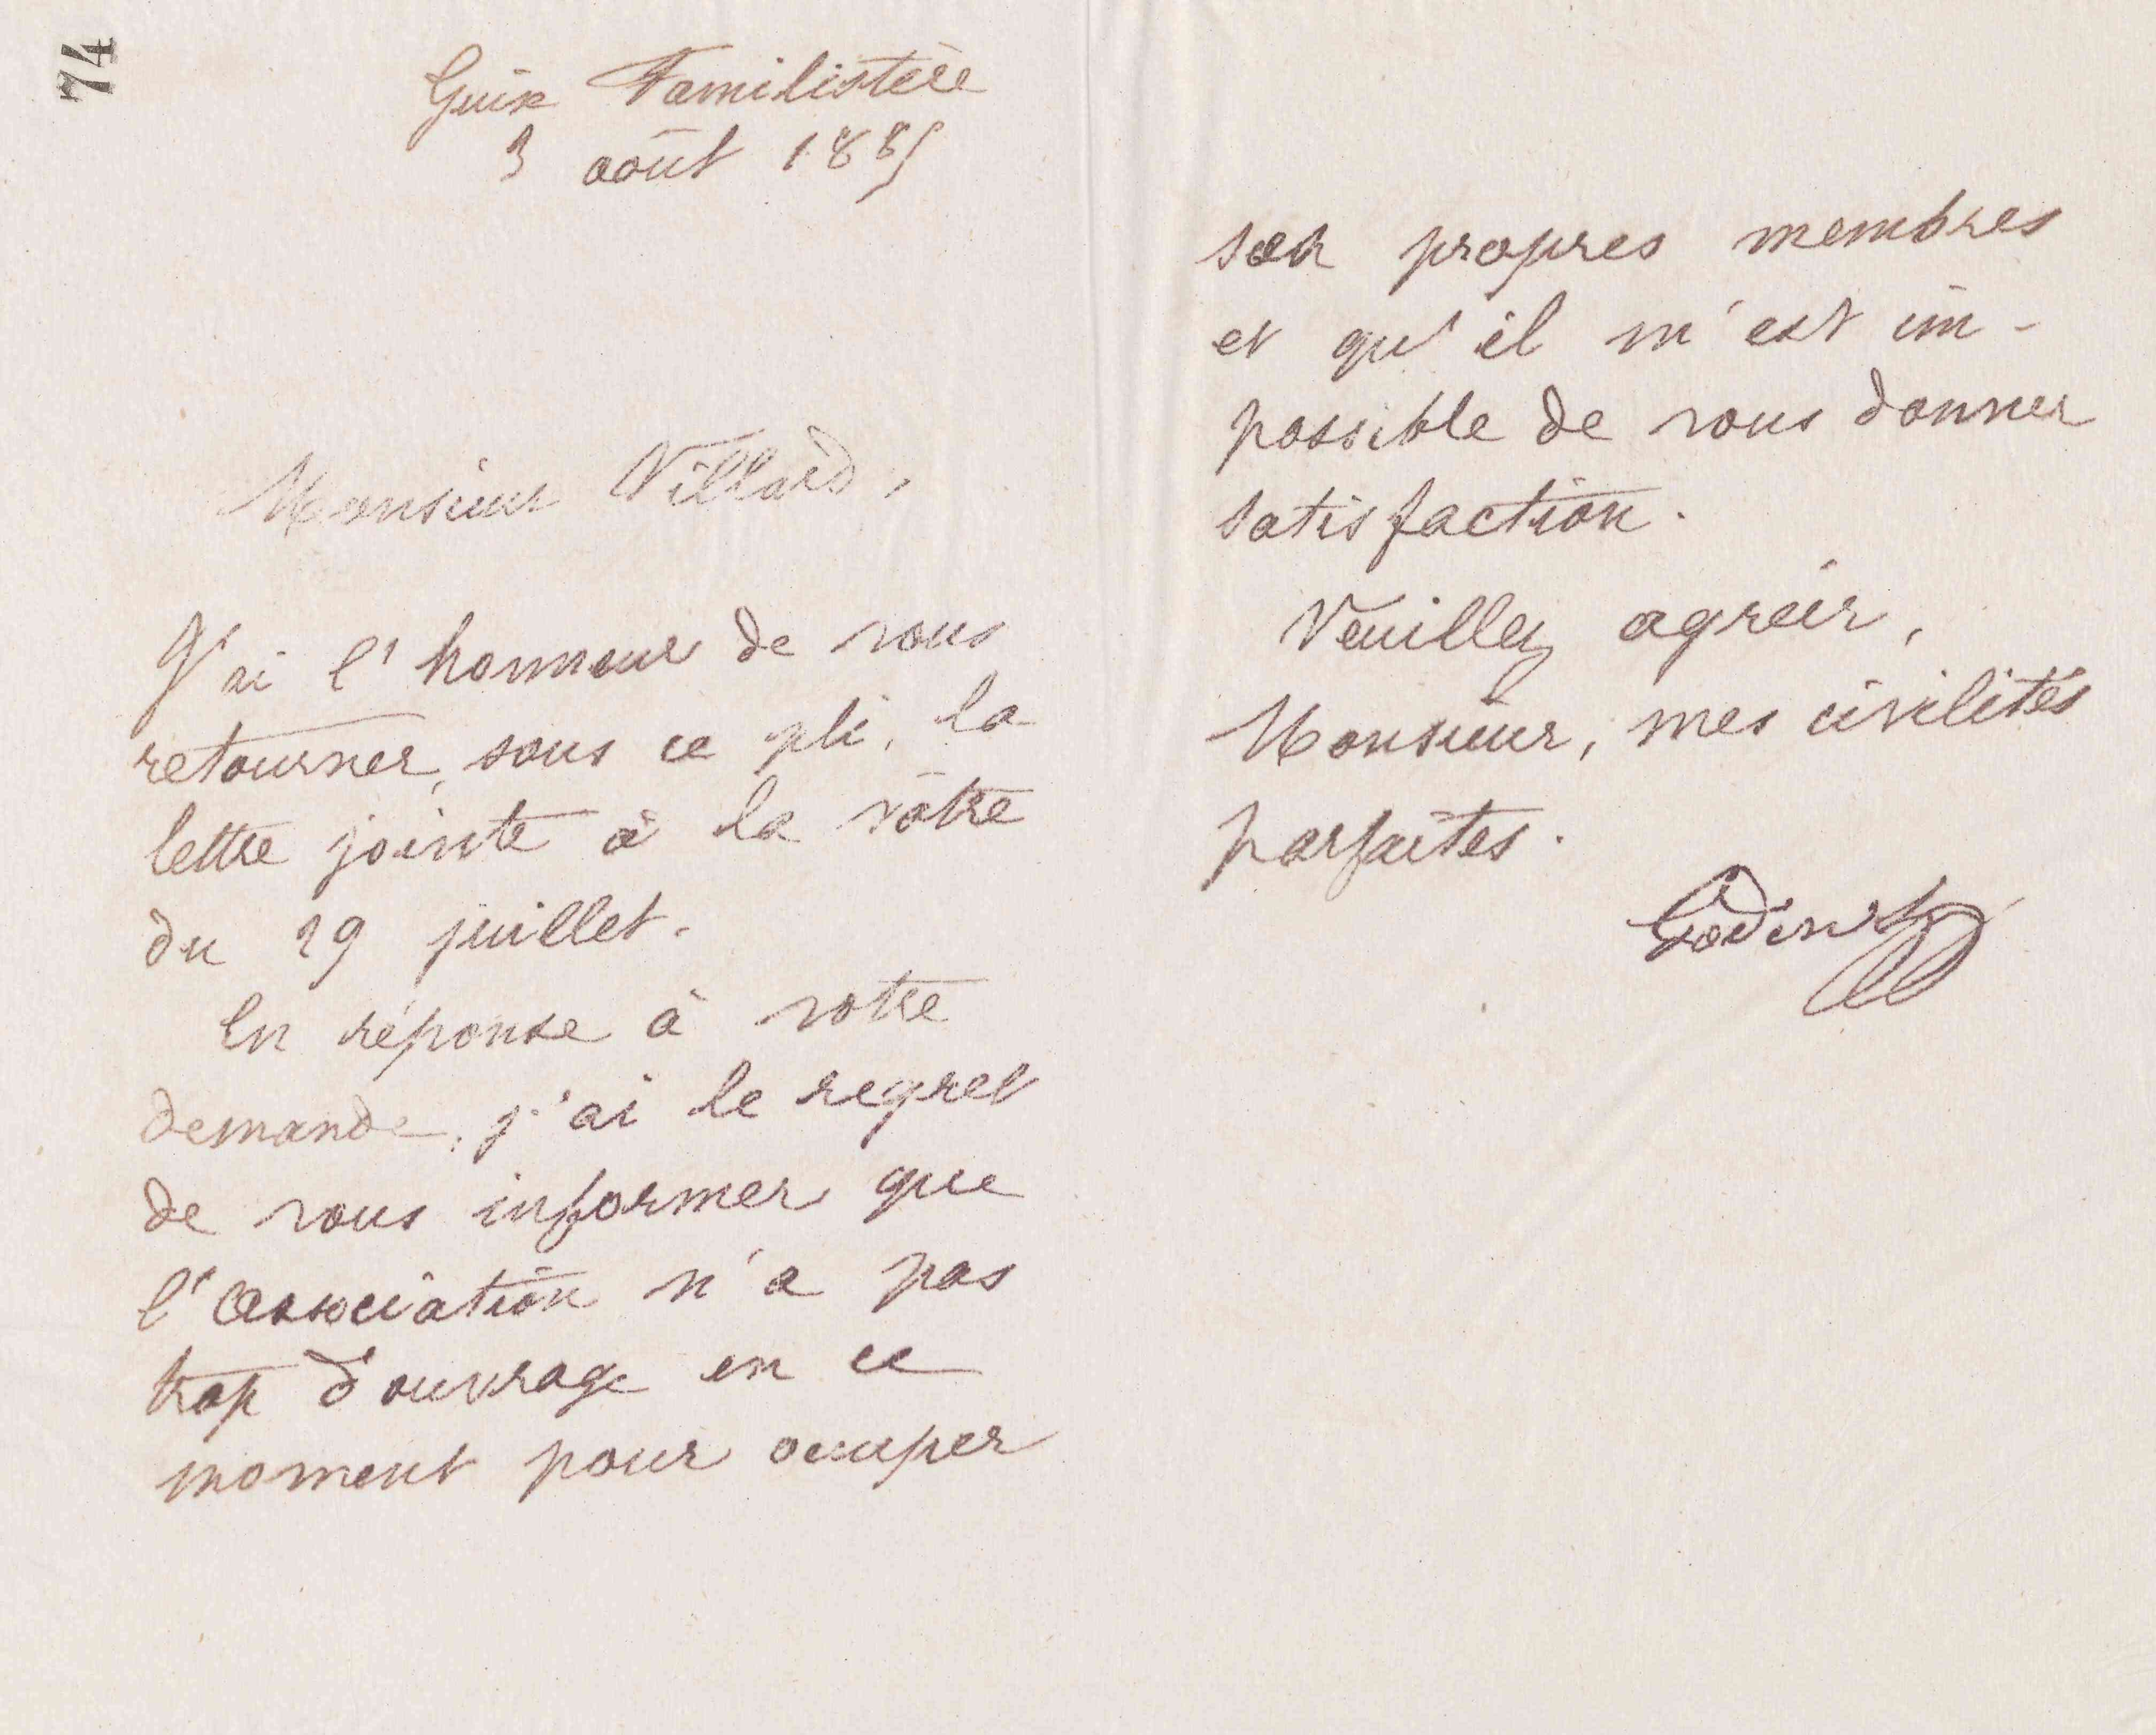 74
Guise Familistère
3 août 1885
Monsieur Villard,
J'ai l'honneur de vous
retourner, sous ce pli, la
lettre jointe à la vôtre
du 29 juillet.
En réponse à votre
demande, j'ai le regret
de vous informer que
l'Association n'a pas
trop d'ouvrage en ce
moment pour occuper
ses propres membres
et qu'il m'est im-
possible de vous donner
satisfaction.
Veuillez agréer,
Monsieur, mes civilités
parfaites.
Godin